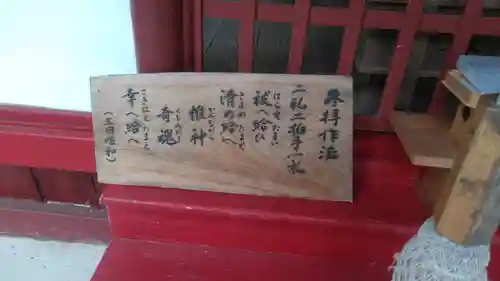 参拝作法
二礼二拍手一礼
祓へ給ひ
はらえたまい
清め給へ
きよめたまえ
惟神
かむながら
奇魂
くしみたま
幸へ給へ
さきはえたまえ
(三回唱和)